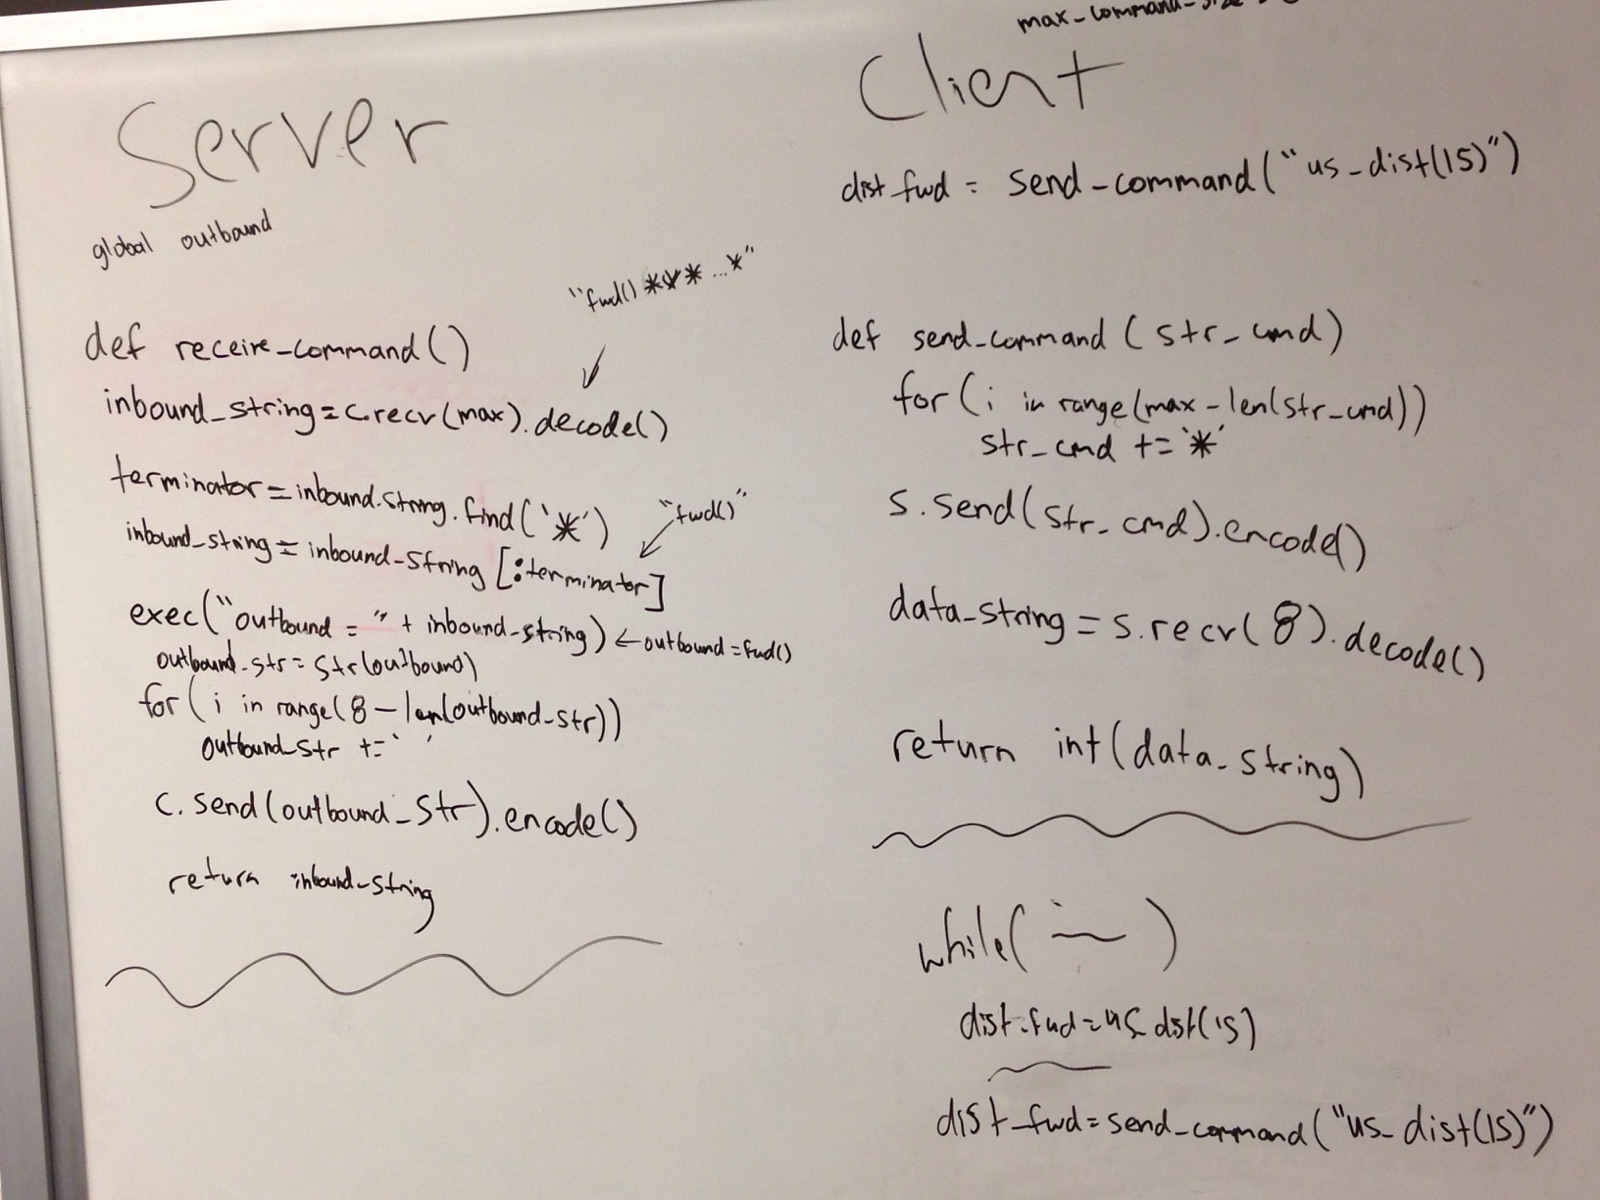 Server
global outbound
"fwd()***...*"
def receive_command()
inbound_string = c.recv(max).decode()
terminator = inbound_string.find('*')
"fwd()"
inbound_string = inbound_string [:terminator]
exec("outbound = " + inbound_string) ← outbound = fwd()
outbound_str = str(outbound)
for (i in range(8 - len(outbound_str))
outbound_str += ' '
c.send(outbound_str).encode()
return inbound_string
max_command_size
Client
dist_fwd = send_command("us_dist(15)")
def send_command (str_cmd)
for (i in range(max - len(str_cmd))
str_cmd += '*'
s.send(str_cmd).encode()
data_string = s.recv(8).decode()
return int(data_string)
while( )
dist_fwd = us_dist(15)
dist_fwd = send_command("us_dist(15)")